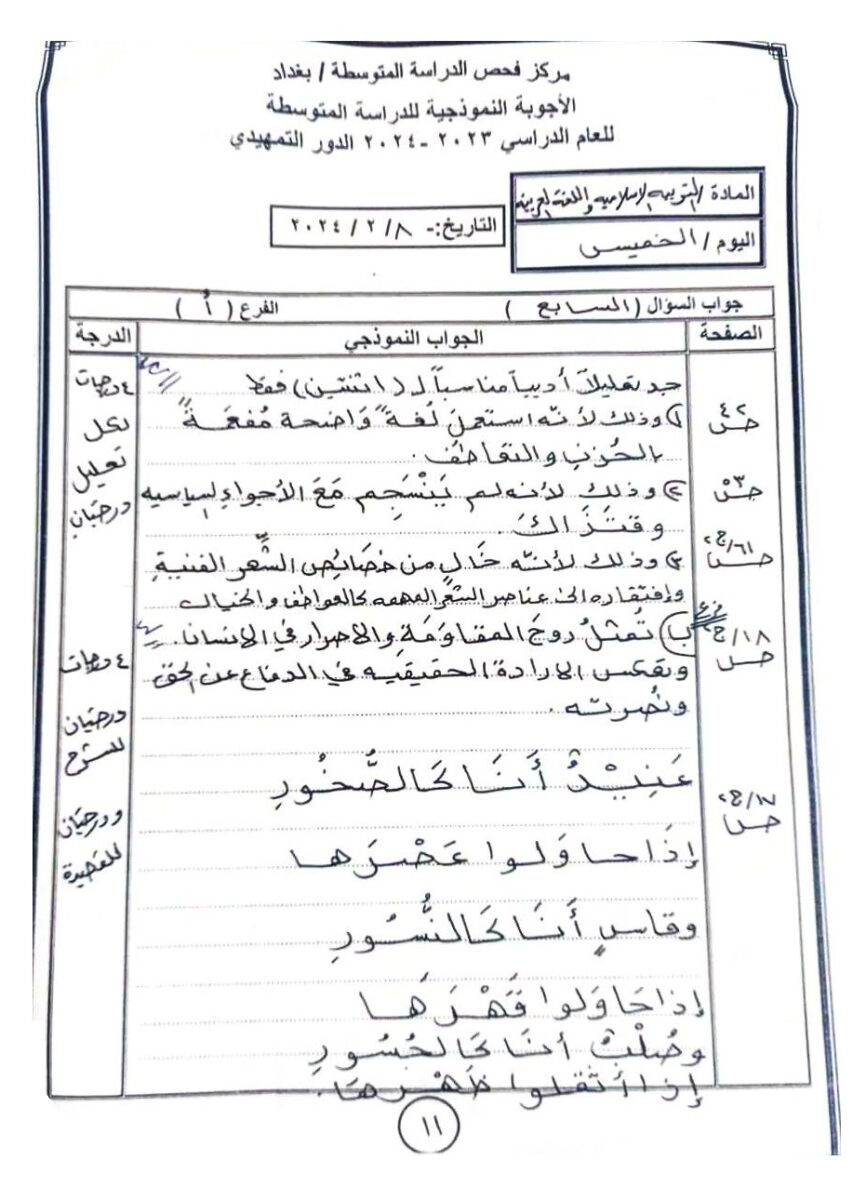 مركز فحص الدراسة المتوسطة / بغداد
الأجوبة النموذجية للدراسة المتوسطة
للعام الدراسي ٢٠٢٣ -٢٠٢٤ الدور التمهيدي
المادة / التربيه الاسلاميه واللغة العربية
اليوم / الخميس
التاريخ:- ٨ / ٢ / ٢٠٢٤
جواب السؤال ( السابع ) الفرع ( أ )
الصفحة الجواب النموذجي الدرجة
جد تعليلاً أدبياً مناسباً لـ (اثنتين) فقط ٤ درجات
ص ٤٢ ١) وذلك لأنّه استعمل لُغةً وَاضحة مُفعَمَةً لكل
بالحُزنِ والتعاطف. تعليل
ص ٣٥ ٢) وذلك لأنه لم يَنْسَجِم مَعَ الأجواءِ السياسيه درجتان
وقتَذَاكَ.
ص ٦١/ج٢ ٣) وذلك لأنّه خَالٍ من خصائِصِ الشِّعر الفنيةِ
وإفتقاره الى عناصر الشعر المهمه كالعواطف والخيال
فرع
ص ١٨/ج٢ ب) تُمثلُ روحَ المقاوَمَةِ والاصرار في الانسان. ٤ درجات
وتعكس الارادة الحقيقيه في الدفاع عن الحق
ونُصرته. درجتان
للشرح
ص ١٧/ج٢ عَنِيْدٌ أَنَا كَالصُّخُورِ ودرجتان
للقصيدة
إذَا حاوَلوا عَصْرَها
وقاسٍ أَنَا كَالنُّسُورِ
إذا حَاوَلوا قَهْرَهَا
وصُلْبٌ أنَا كالجُسُورِ
إذا أثقلوا ظَهْرهَا.
١١